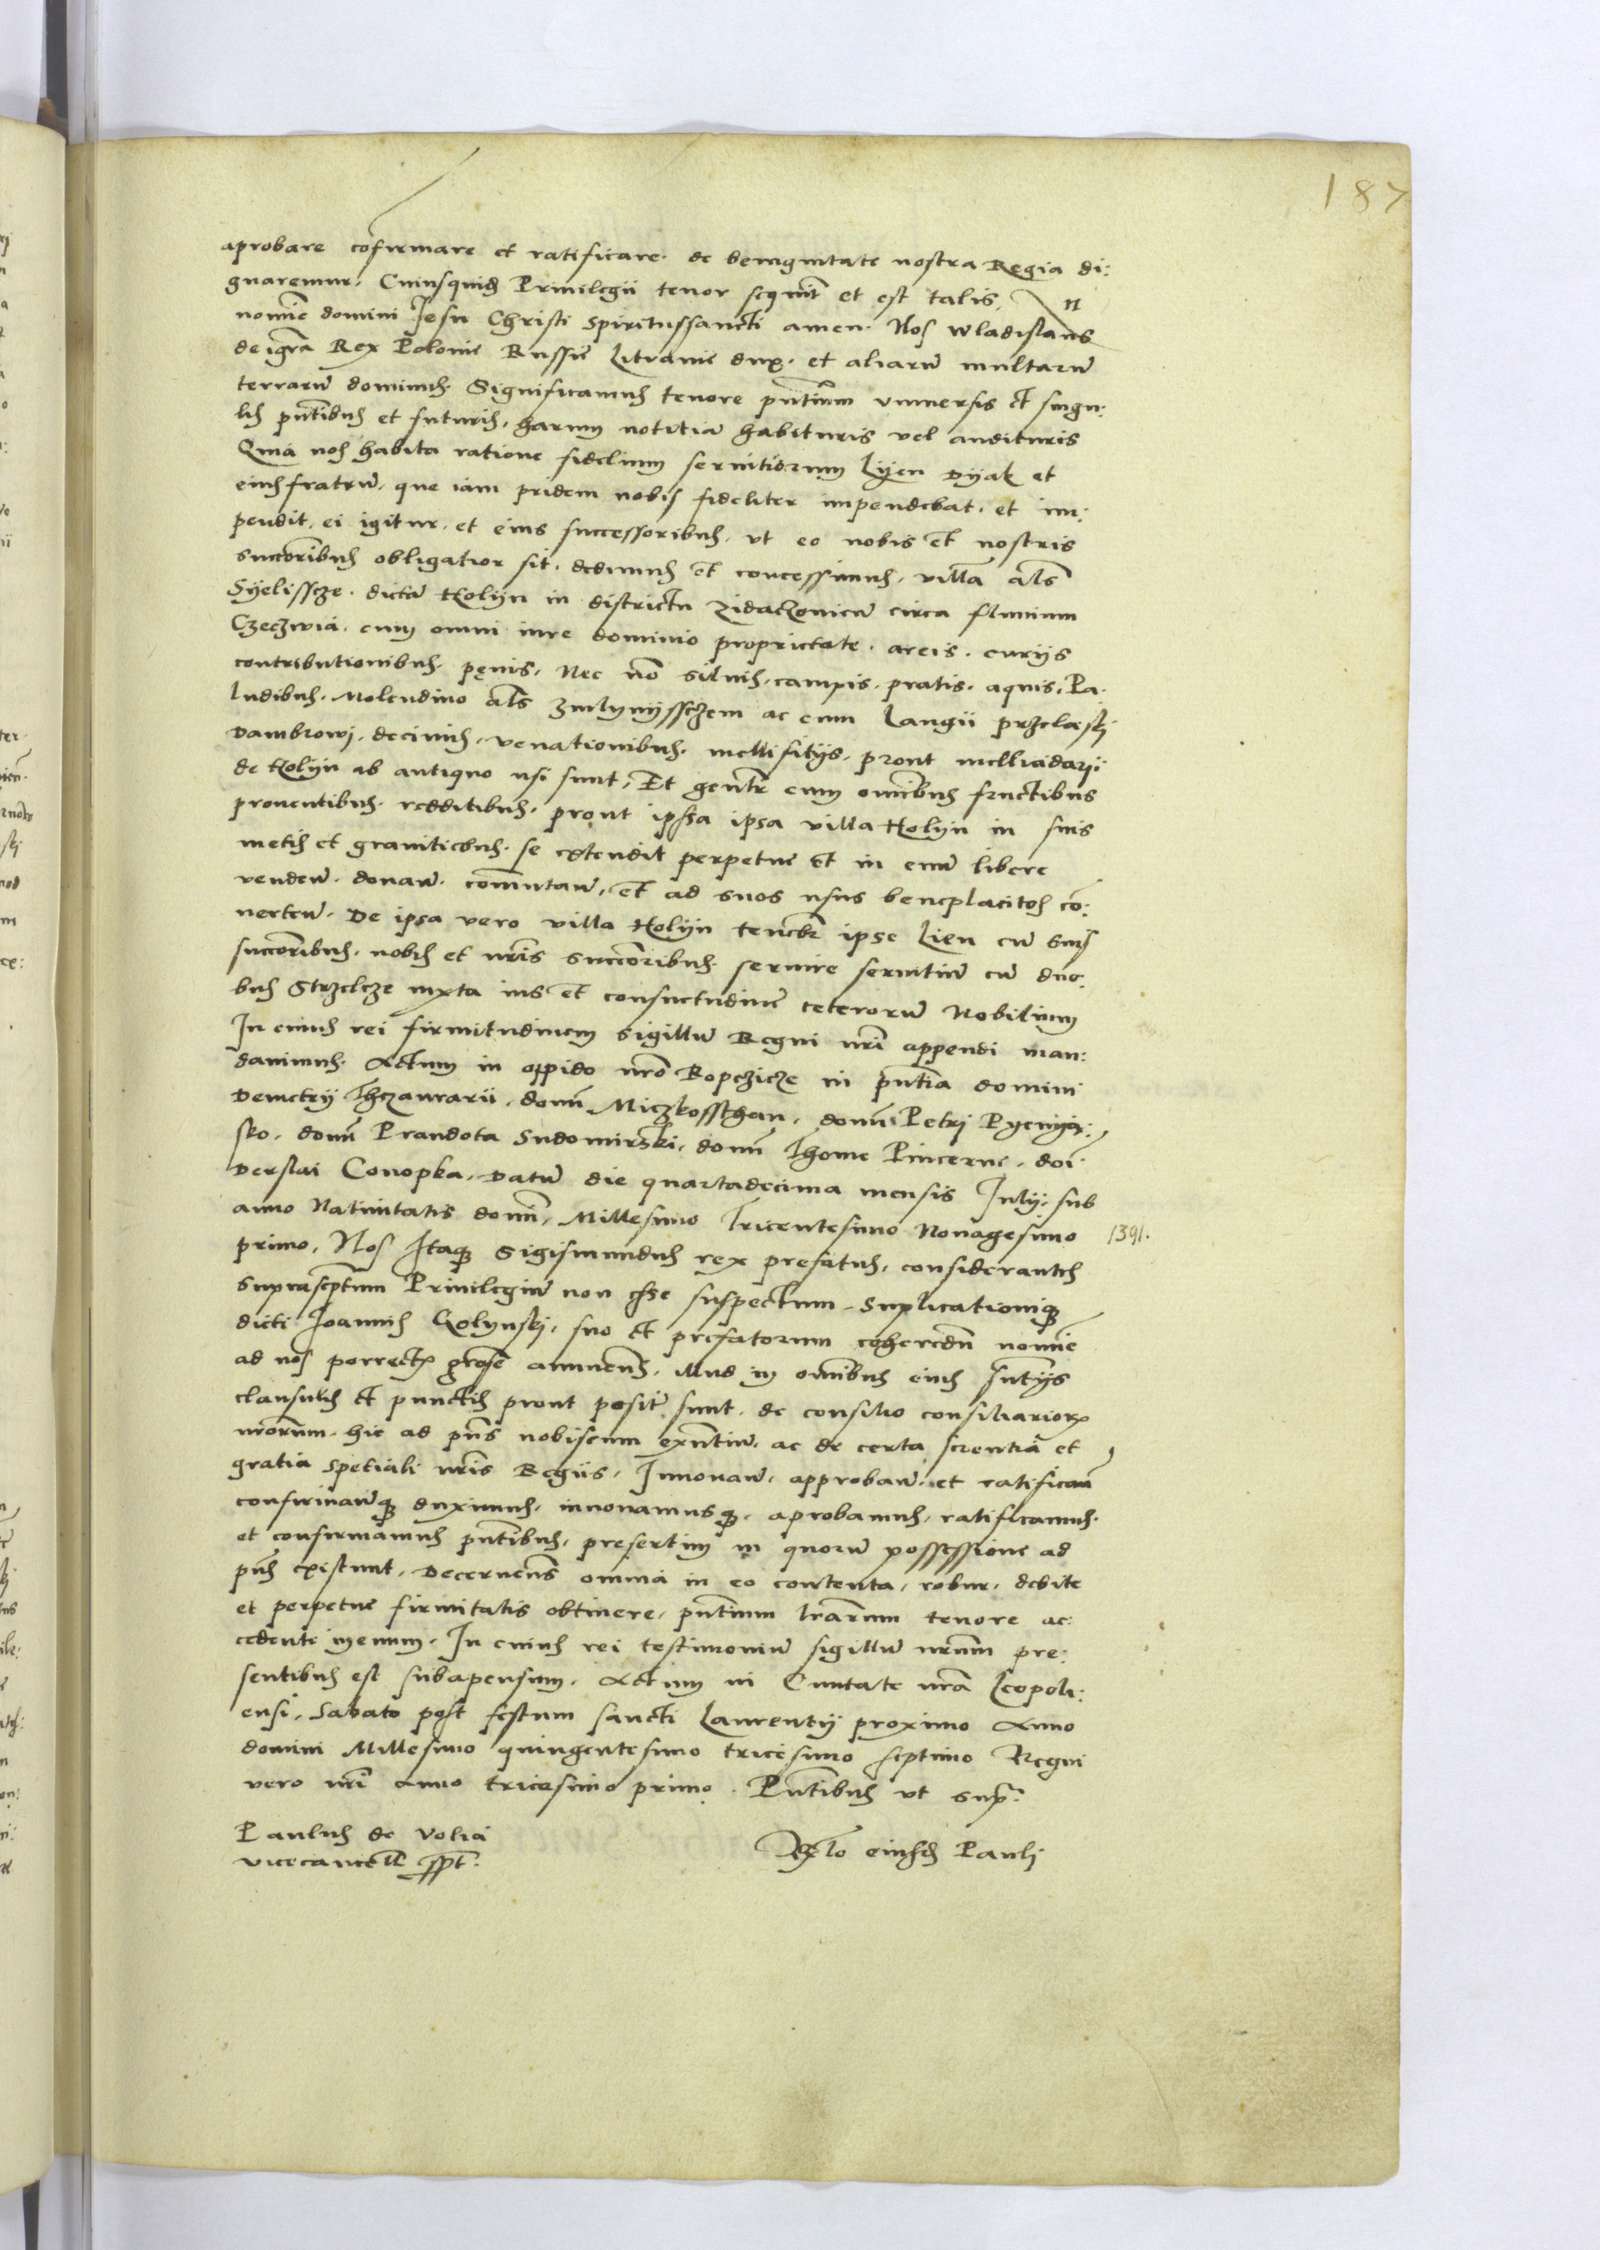 187
aprobare cōfirmare et ratificare. de benignitate nostra Regia di:
gnaremur. Cuiusquidē Privilegii tenor sequit̄ et est talis. In
nomīe domini Jesu Christi Spiritussancti amen. Nos Wladislaus
dei grā Rex Polonie Russie Litvanie dux. et aliarū multarū
terrarū dominus. Significamus tenore pn̄tium vniuersis et singu:
lis pn̄tibus et futuris, harum notitiā habituris vel audituris
Quia nos habita ratione fidelium seruitiorum Lyen Dyak et
eius fratrū, que iam pridem nobis fideliter impendebat. et im:
pendit. ei igitur. et eius successoribus. vt eo nobis et nostris
succōribus obligatior sit. dedimus et concessimus. villā als
Syelisscze. dictā Holyn in districtu Zidaczouien̄ circa fluuium
Czeczwiā. cum omni iure dominio proprietate. areis. curijs
contributionibus. penis. Nec nō siluis. campis. pratis. aquis. Pa:
ludibus. Molendino als zmlynysszczem ac cum Langii przelasky
Dambrowj. decimis. venationibus. mellifitijs. prout melliadarij
de Holyn ab antiquo vsi sunt, Et gen̄tr cum om̄ibus fructibus
prouentibus. redditibus. prout ipssa ipsa villa Holyn in suis
metis et granitiebus. se extendit perpetue et in euū libere
venden̄. donan̄. com̄utan̄. et ad suos vsus beneplacitos cō:
uerten̄. De ipsa vero villa Holyn tenebr̄ ipse Lien cū suis
succōribus. nobis et nr̄is succōribus. seruire seruitiū cū duo:
bus Strzelcze iuxta ius et consuetudinē ceterorū Nobilium
In cuius rei firmitudinem sigillū Regni nr̄i appendi man:
dauimus. Actum in oppido nr̄o Ropczicze in pn̄tia domini
Demetrij Thezaurarii. domī Miczkosschan. domī Petri Pyenyą:
sko. domī Prandota Sudomirski. domī Thome Pincerne. doī
Derslai Conopka. Datū die quartadecima mensis Julij. sub
anno Natiuitatis domī. Millesimo Tricentesimo Nonagesimo
1391.
primo. Nos Itaq Sigismundus rex prefatus. considerantes
suprascp̄tum Priuilegiū non esse suspectum. Suplicationiq
dicti Joannis Holynski. suo et prefatorum coheredū nomīe
ad nos porrecte grōse annuen̄s. Illud in om̄ibus eius sn̄tijs
clausulis et punctis prout posite sunt. de consilio consiliariorꝝ
nr̄orum. hic ad pn̄s nobiscum exn̄tiū. ac de certa scientia et
gratia spetiali nr̄is Regiis. Innouan̄. approban̄. et ratifican̄
confirman̄q duximus. innouamusq. aprobamus. ratificamus.
et confirmamus pn̄tibus. presertim in quorū possessione ad
pn̄s existunt. Decernen̄s omnia in eo contenta. robur. debite
et perpetue firmitatis obtinere. pn̄tium lr̄arum tenore ac:
cedente mediante. In cuius rei testimoniū sigillū nr̄um pre:
sentibus est subapensum. Actum in Ciuitate nr̄a Leopoli:
ensi. Sabato post festum sancti Laurentij proximo Anno
domini Millesimo quingentesimo tricesimo septimo Regni
vero nr̄i anno tricesimo primo. Pn̄tibus vt supr̄.
Paulus de Volia
vicecancell̄ sspt.
Relo eiusdē Pauli